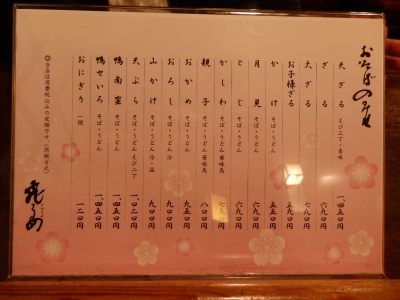 おそばのみせ
天ざる えび二丁・青味 一、四五〇円
ざる 六九〇円
大ざる 七九〇円
お子様ざる 五九〇円
かけ そば・うどん 五五〇円
月見 そば・うどん 六九〇円
とじ そば・うどん 六九〇円
かしわ そば・うどん 華味鳥
親子 そば・うどん 華味鳥 八〇〇円
おかめ そば・うどん 九五〇円
おろし そば・うどん 冷 九〇〇円
山かけ そば・うどん 冷・温 九〇〇円
天ぷら そば・うどん えび二丁 一、〇二〇円
鴨南蛮 そば・うどん 一、四五〇円
鴨せいろ そば・うどん 一、四五〇円
おにぎり 一個 一二〇円
◎当店は消費税込みの定価です。(内税方式)